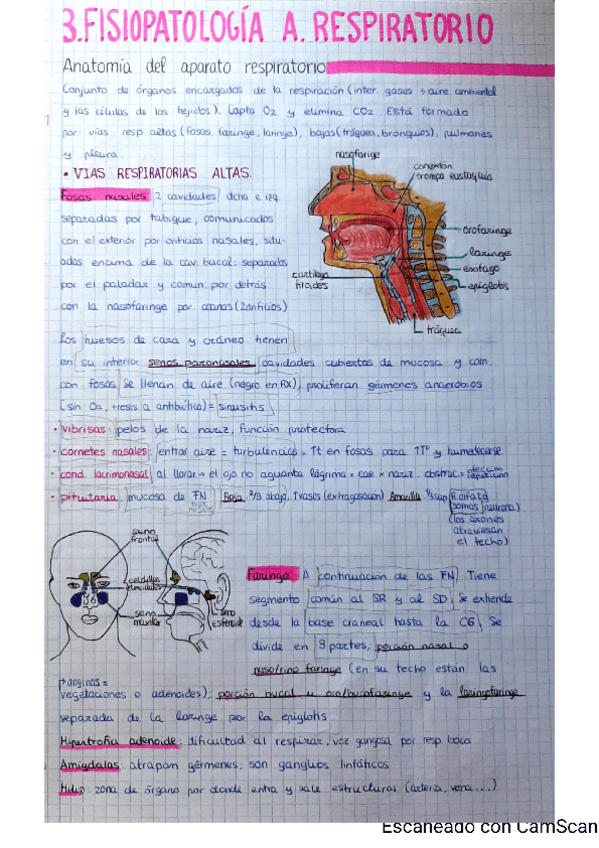 3.FISIOPATOLOGÍA A. RESPIRATORIO
Anatomía del aparato respiratorio
Conjunto de órganos encargados de la respiración (inter. gases ÷ aire ambiental
y las células de los tejidos). Capta O2 y elimina CO2. Está formado
por: vías resp altas (fosas, faringe, laringe), bajas (tráquea, bronquios), pulmones
y pleura.
• VIAS RESPIRATORIAS ALTAS.
Fosas nasales: 2 cavidades dcha e izq.
separadas por tabique, comunicados
con el exterior por orificios nasales, situ-
adas encima de la cav. bucal: separadas
por el paladar y comun. por detrás
con la nasofaringe por coanas (2 orificios)
nasofaringe
conexión
trompa eustaquio
orofaringe
laringe
esófago
epiglotis
cartílago
tiroides
tráquea
Los huesos de cara y cráneo tienen
en su interior senos paranasales cavidades cubiertas de mucosa y com.
con fosas. Se llenan de aire (negro en RX), proliferan gérmenes anaerobios
(sin O2, resis a antibiótico) = sinusitis
• vibrisas: pelos de la nariz, función protectora.
• cornetes nasales: entrar aire = turbulencias = ↑t en fosas para ↑Tº y humedecerse.
• cond. lacrimonasal: al llorar → el ojo no aguanta lágrima = cae x nariz. obstruc. = infección repetición
• pituitaria: mucosa de FN Roja 2/3 abajo, ↑vasos (extravasación) Amarilla 1/3 sup R. olfato
somas neurona)
(los axones
atraviesan
el techo)
seno
frontal
celdillas
etmoidales
seno
maxilar
seno
esfenoide
Faringe: A continuación de las FN. Tiene
segmento común al SR y al SD. Se extiende
desde la base craneal hasta la C6. Se
divide en 3 partes, porción nasal o
naso/rino faringe (en su techo están las
vegetaciones o adenoides); porción bucal u oro/bucofaringe y la laringofaringe
separada de la laringe por la epiglotis
Hipertrofia adenoide: dificultad al respirar, voz gangosa por resp. boca.
Amígdalas: atrapan gérmenes, son ganglios linfáticos
Hilio: zona de órgano por donde entra y sale estructuras (arteria, vena...)
Escaneado con CamScan